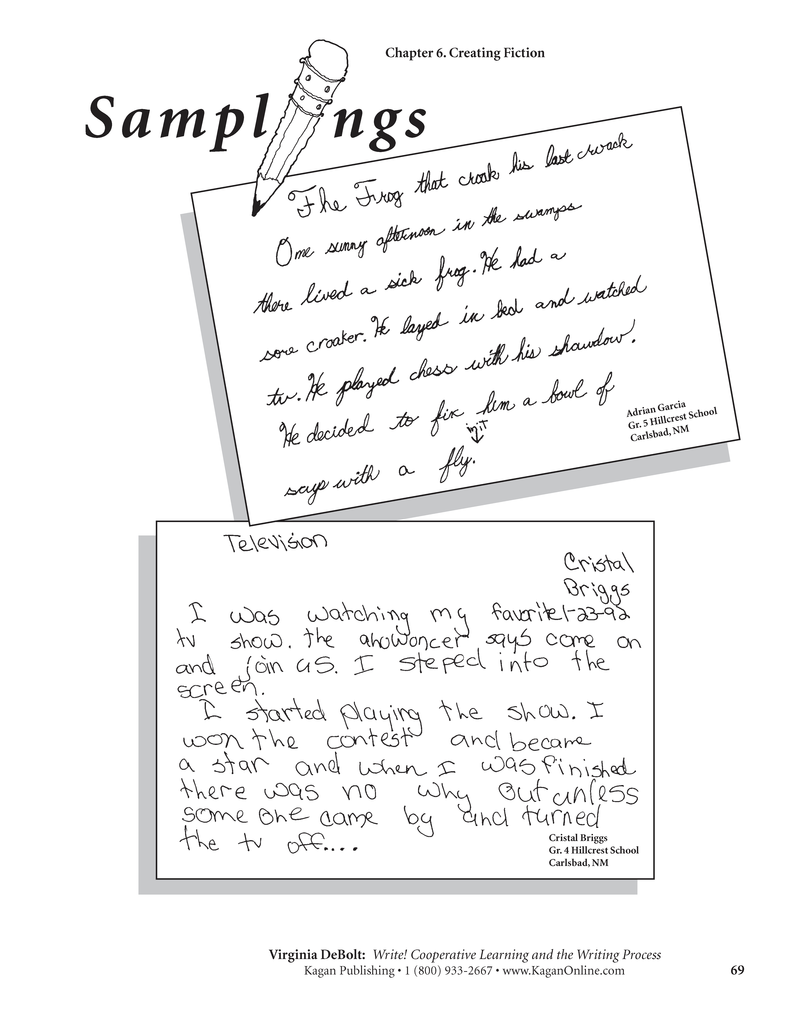 Chapter 6. Creating Fiction
Samplings
The Frog that croak his last crwack
One sunny afternoon in the swamps
there lived a sick frog. He had a
sore croaker. He layed in bed and watched
tv. He played chess with his shawdow.
He decided to fix him a bowl of
init
soup with a fly.
Adrian Garcia
Gr. 5 Hillcrest School
Carlsbad, NM
Television
Cristal
Briggs
I was watching my favorite 1-23-92
tv show. the anowoncer says come on
and join us. I steped into the
screen.
I started playing the show. I
won the contest and became
a star and when I was finished
there was no why out unless
some one came by and turned
the tv off....
Cristal Briggs
Gr. 4 Hillcrest School
Carlsbad, NM
Virginia DeBolt: Write! Cooperative Learning and the Writing Process
Kagan Publishing • 1 (800) 933-2667 • www.KaganOnline.com
69